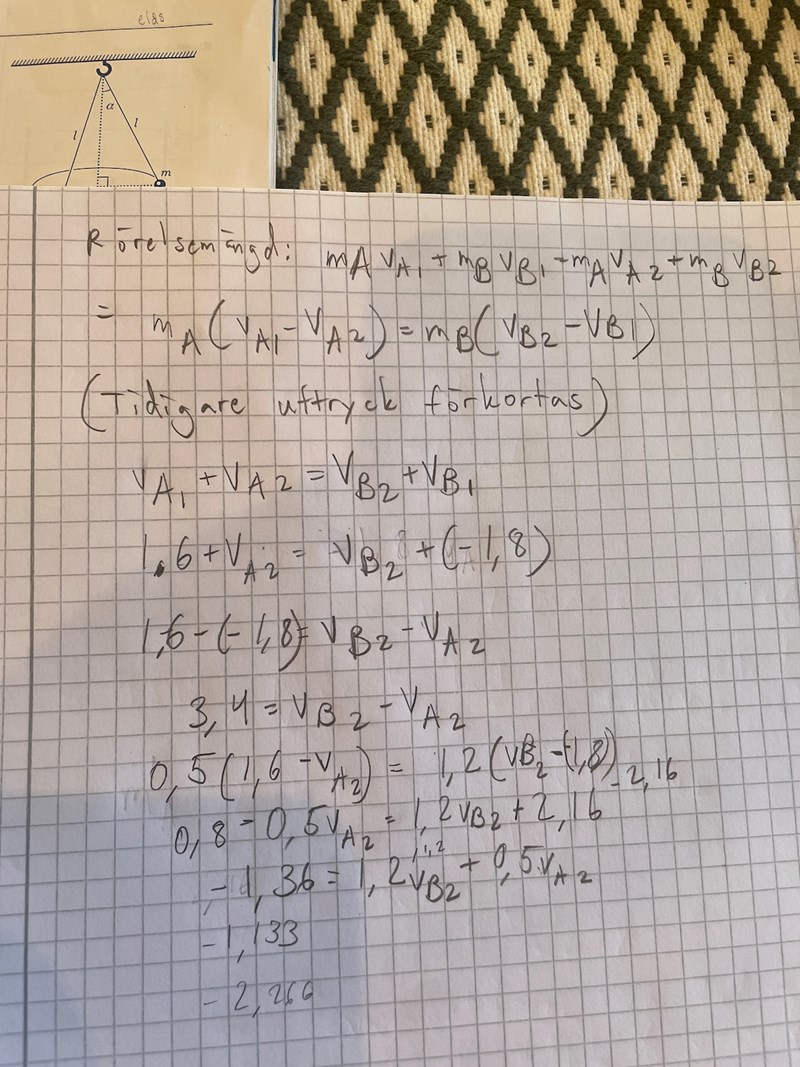 elds
α
l
l
m
Rörelsemängd: mA vA1 + mB vB1 = mA vA2 + mB vB2
= mA (vA1 - vA2) = mB (vB2 - vB1)
(Tidigare uttryck förkortas)
vA1 + vA2 = vB2 + vB1
1,6 + vA2 = vB2 + (-1,8)
1,6 - (-1,8) = vB2 - vA2
3,4 = vB2 - vA2
0,5(1,6 - vA2) = 1,2(vB2 - (-1,8)
- 2,16
0,8 - 0,5vA2 = 1,2vB2 + 2,16
- 1,36 = 1,2vB2 + 0,5vA2
- 1,133
- 2,266